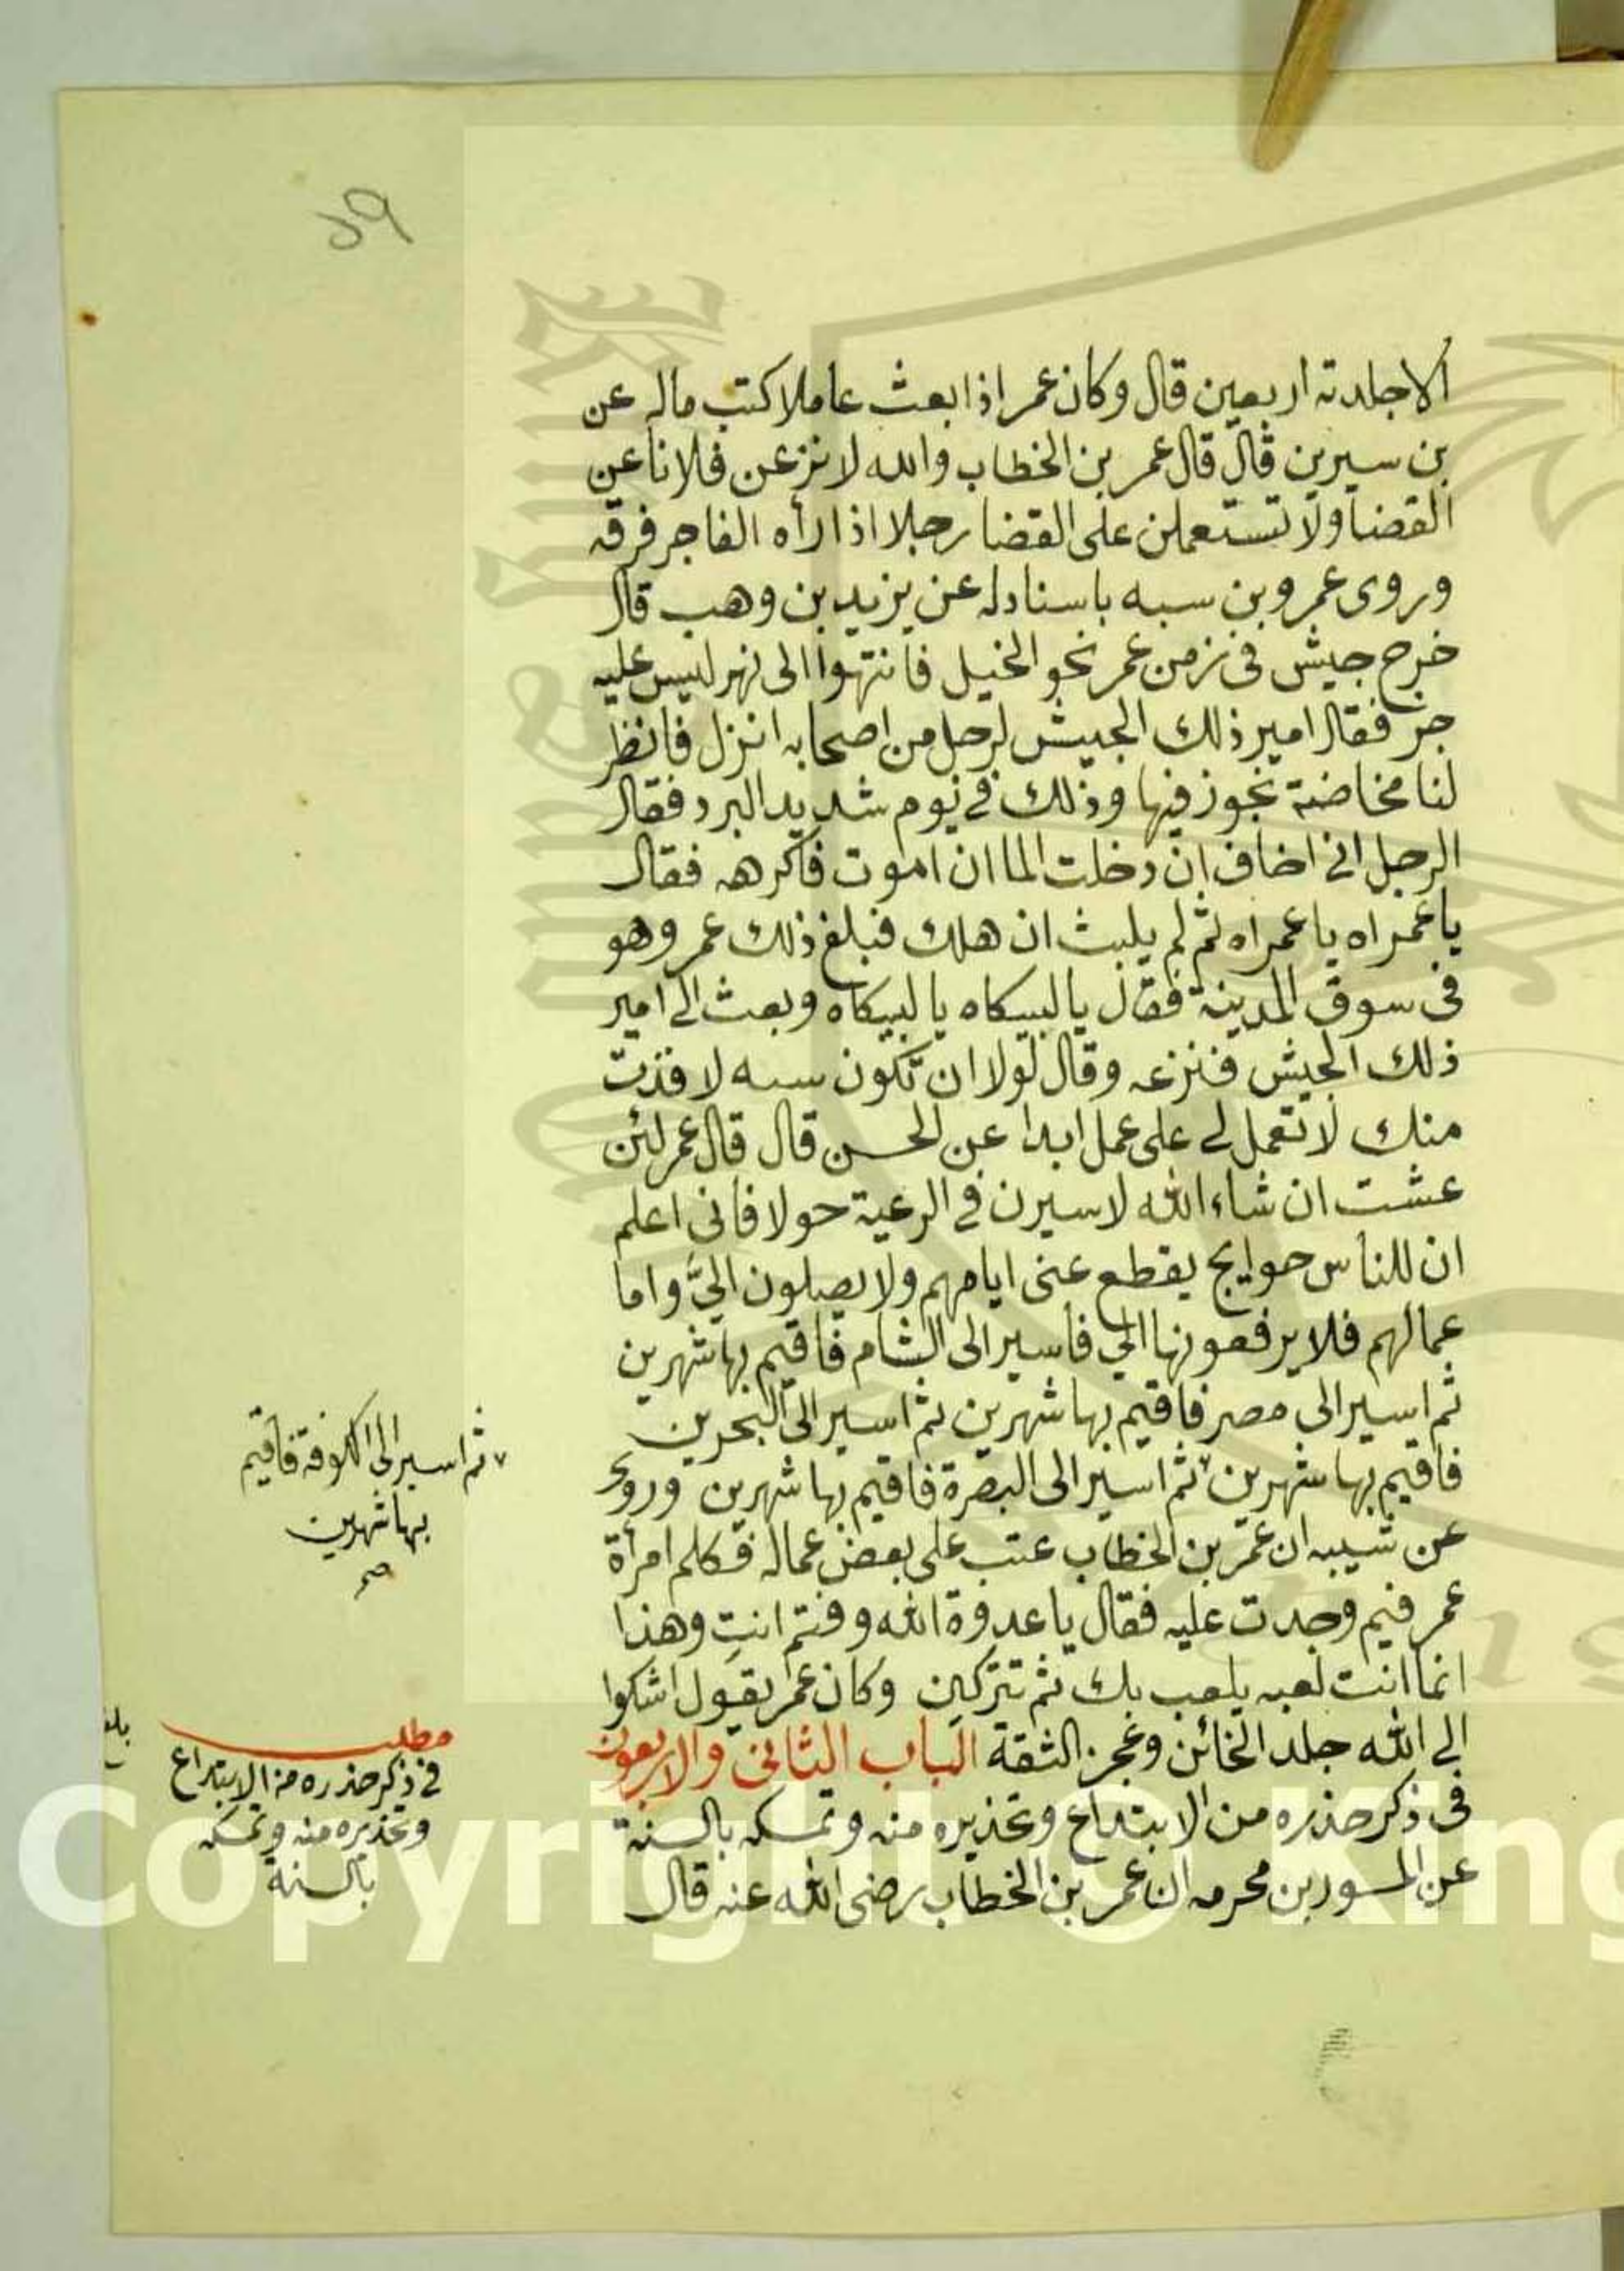 الاجلدته اربعين قال وكان عمر اذا بعث عاملا كتب ماله عن
بن سيرين قال قال عمر بن الخطاب والله لانزعن فلانا عن
القضا ولا تستعملن على القضا رجلا اذا رأه الفاجر فرقه
وروى عمرو بن سبه باسناد له عن يزيد بن وهب قال
خرج جيش في زمن عمر نحو الخيل فانتهوا الى نهر ليس عليه
جز فقال امير ذلك الجيش لرجل من اصحابه انزل فانظر
لنا مخاضة نجوز فيها وذلك في يوم شديد البرد فقال
الرجل اني اخاف ان دخلت الما ان اموت فاكرهه فقال
يا عمراه يا عمراه ثم لم يلبث ان هلك فبلغ ذلك عمر وهو
في سوق المدينة فقال يالبيكاه يالبيكاه وبعث الى امير
ذلك الجيش فنزعه وقال لولا ان تكون سنه لاقذت
منك لا تعمل لي على عمل ابدا عن الحسن قال قال عمر لئن
عشت ان شاء الله لاسيرن في الرعية حولا فاني اعلم
ان للناس حوايج يقطع عنى ايامهم ولا يصلون اليّ واما
عمالهم فلا يرفعونها الي فاسير الى الشام فاقيم بها شهرين
ثم اسير الى مصر فاقيم بها شهرين ثم اسير الى البحرين
فاقيم بها شهرين ٧ ثم اسير الى البصرة فاقيم بها شهرين وروى
عن شيبه ان عمر بن الخطاب عتب على بعض عماله فكلم امرأة
عمر فيم وجدت عليه فقال يا عدوة الله وفتم انت وهذا
انما انت لعبه يلعب بك ثم تتركين وكان عمر يقول اشكوا
الى الله جلد الخائن وعجز الثقة الباب الثاني والاربعون
في ذكر حذره من الابتداع وتحذيره منه وتمسكه بالسنة
عن المسور بن محرمه ان عمر بن الخطاب رضى الله عنه قال
٧ ثم اسير الى الكوفة فاقيم
بها شهرين
صح
مطلب
في ذكر حذره من الابتداع
وتحذيره منه وتمسكه
بالسنة
Copyright © King